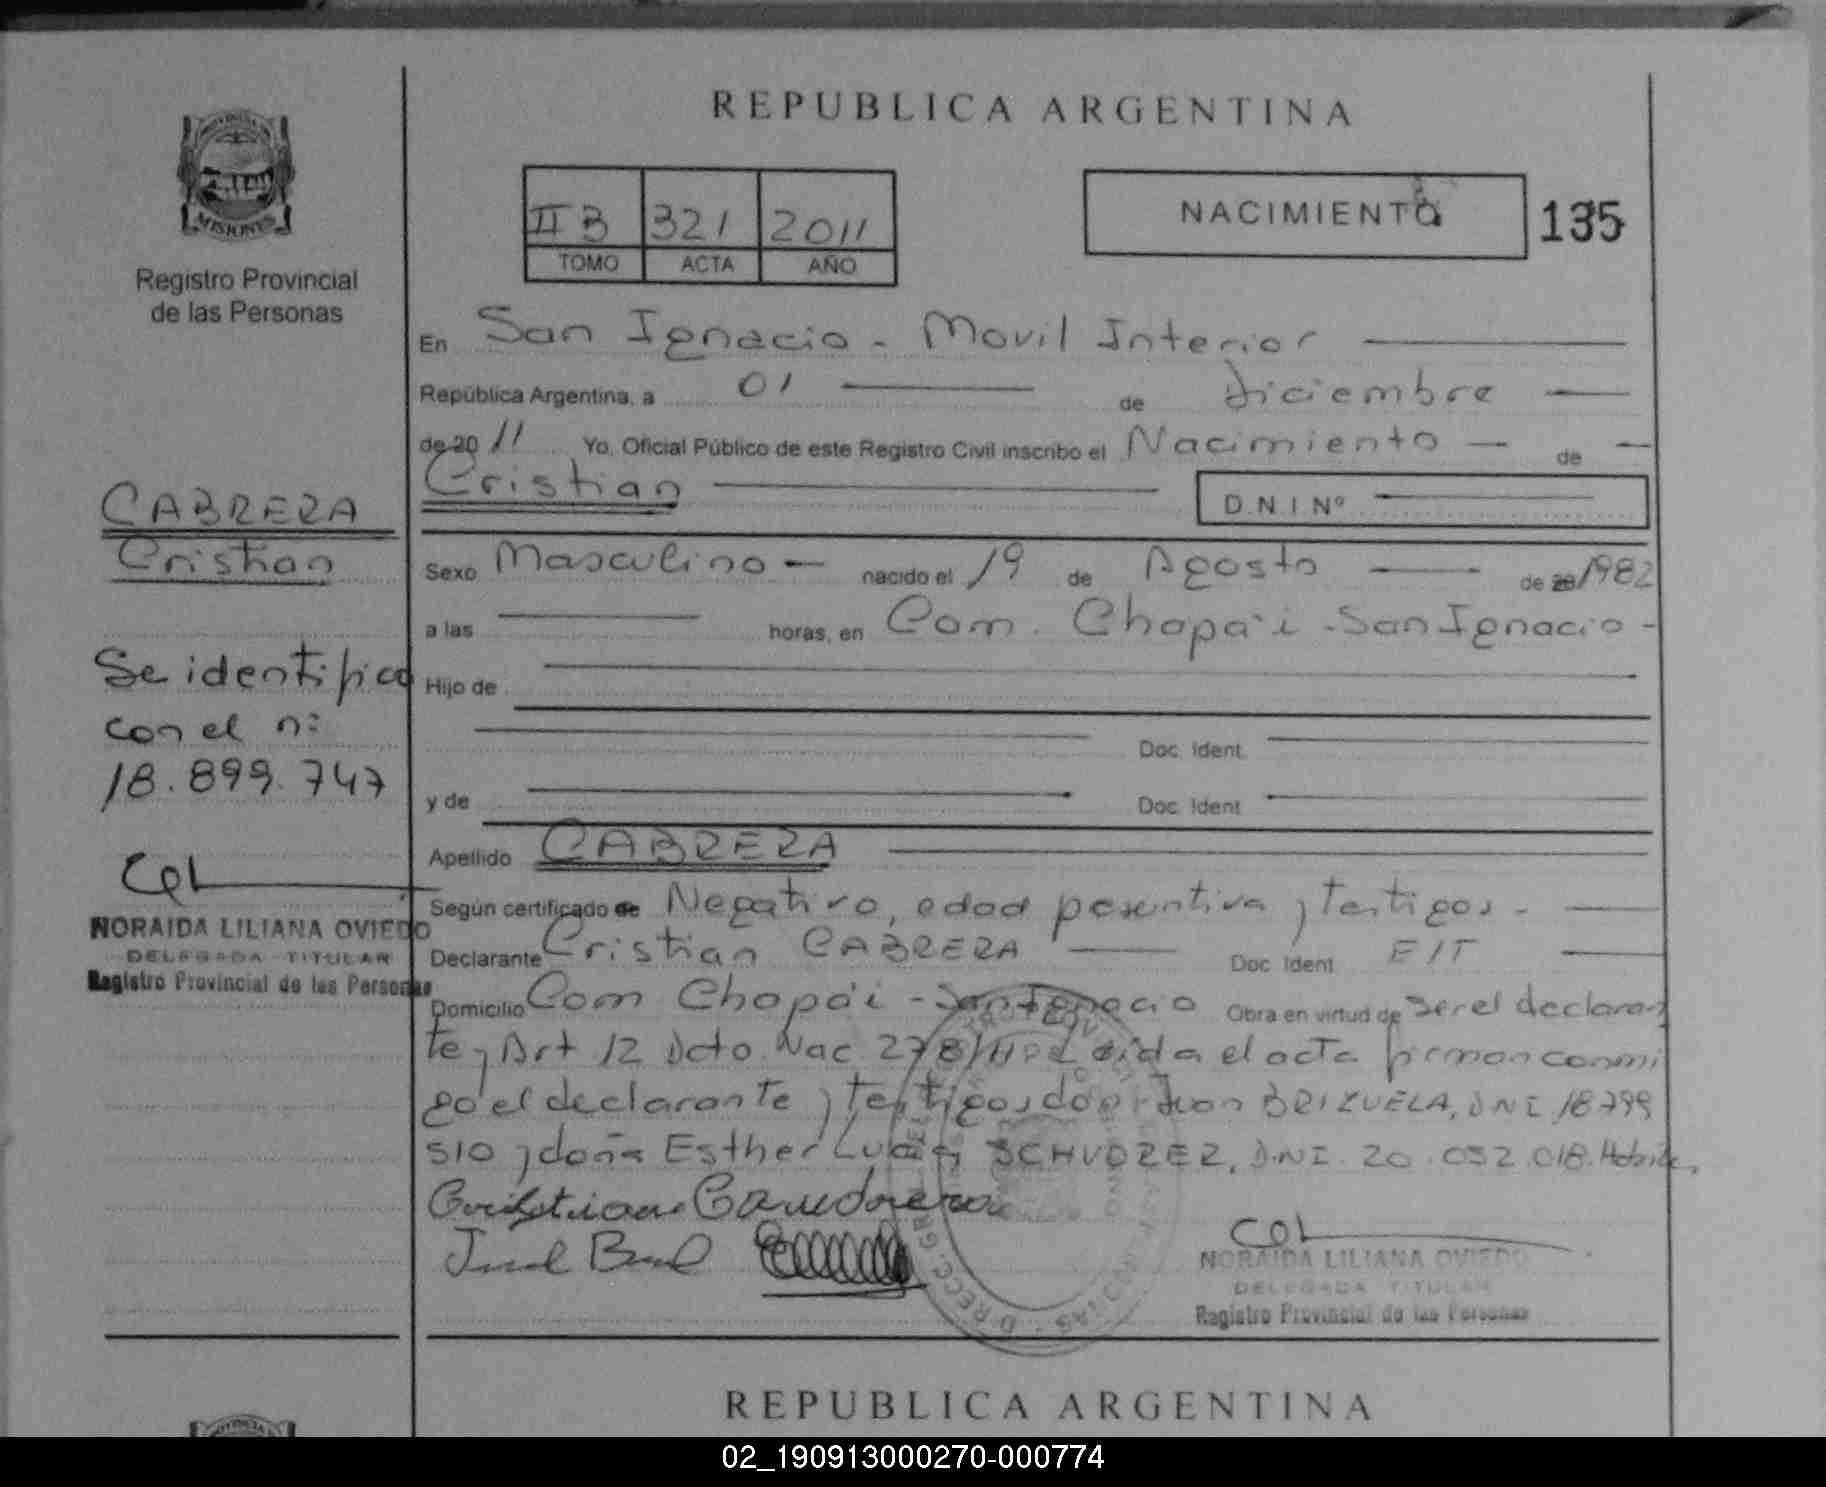 REPUBLICA ARGENTINA
MISIONES
Registro Provincial
de las Personas
II B 321 2011
TOMO ACTA AÑO
NACIMIENTO
135
En San Ignacio - Movil Interior
República Argentina, a 01 de diciembre
de 20 11 Yo, Oficial Público de este Registro Civil inscribo el Nacimiento de
Cristian
D.N.I. Nº
CABRERA
Cristian
Sexo Masculino nacido el 19 de Agosto de 1982
a las horas, en Com. Chapa'i - San Ignacio -
Se identifica
con el nº
18.899.747
Hijo de
Doc. Ident.
y de Doc. Ident.
Apellido CABRERA
Según certificado de Negativo, edad presuntiva y testigos -
Declarante Cristian CABRERA Doc. Ident. E/T
Domicilio Com Chapa'i - San Ignacio Obra en virtud de ser el declaran
te y Art 12 Dcto. Nac 278/11 Leida el acta firman conmi
go el declarante y testigos don Juan BRIZUELA, DNI 18.799
510 y doña Esther Lucia SCHVORER, D.N.I. 20.052.018.
NORAIDA LILIANA OVIEDO
DELEGADA TITULAR
Registro Provincial de las Personas
NORAIDA LILIANA OVIEDO
DELEGADA TITULAR
Registro Provincial de las Personas
REPUBLICA ARGENTINA
02_190913000270-000774